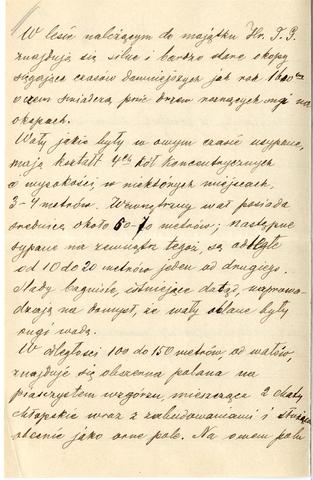 W lesie należącym do majątku Hr. T. P.
znajdują się silne i bardzo stare okopy
sięgające czasów dawniejszych jak rok 1600
o czem świadczą pnie drzew rosnących ongi na
okopach.
Wały jakie były w owym czasie usypane,
mają kształt 4ch kół koncentrycznych
o wysokości, w niektórych miejscach,
3-4 metrów. Wewnętrzny wał posiada
średnicę około 60-70 metrów; następne
sypane na zewnątrz tegoż, są odległe
od 10 do 20 metrów jeden od drugiego.
Ślady bagniste, istniejące dotąd, naprowa-
dzają na domysł, że wały oblane były
ongi wodą.
W odległości 100 do 150 metrów, od wałów,
znajduje się obszerna polana na
piaszczystem wzgórzu, mieszcząca 2 chaty
chłopskie wraz z zabudowaniami i służąca
obecnie jako orne pole. Na owem polu